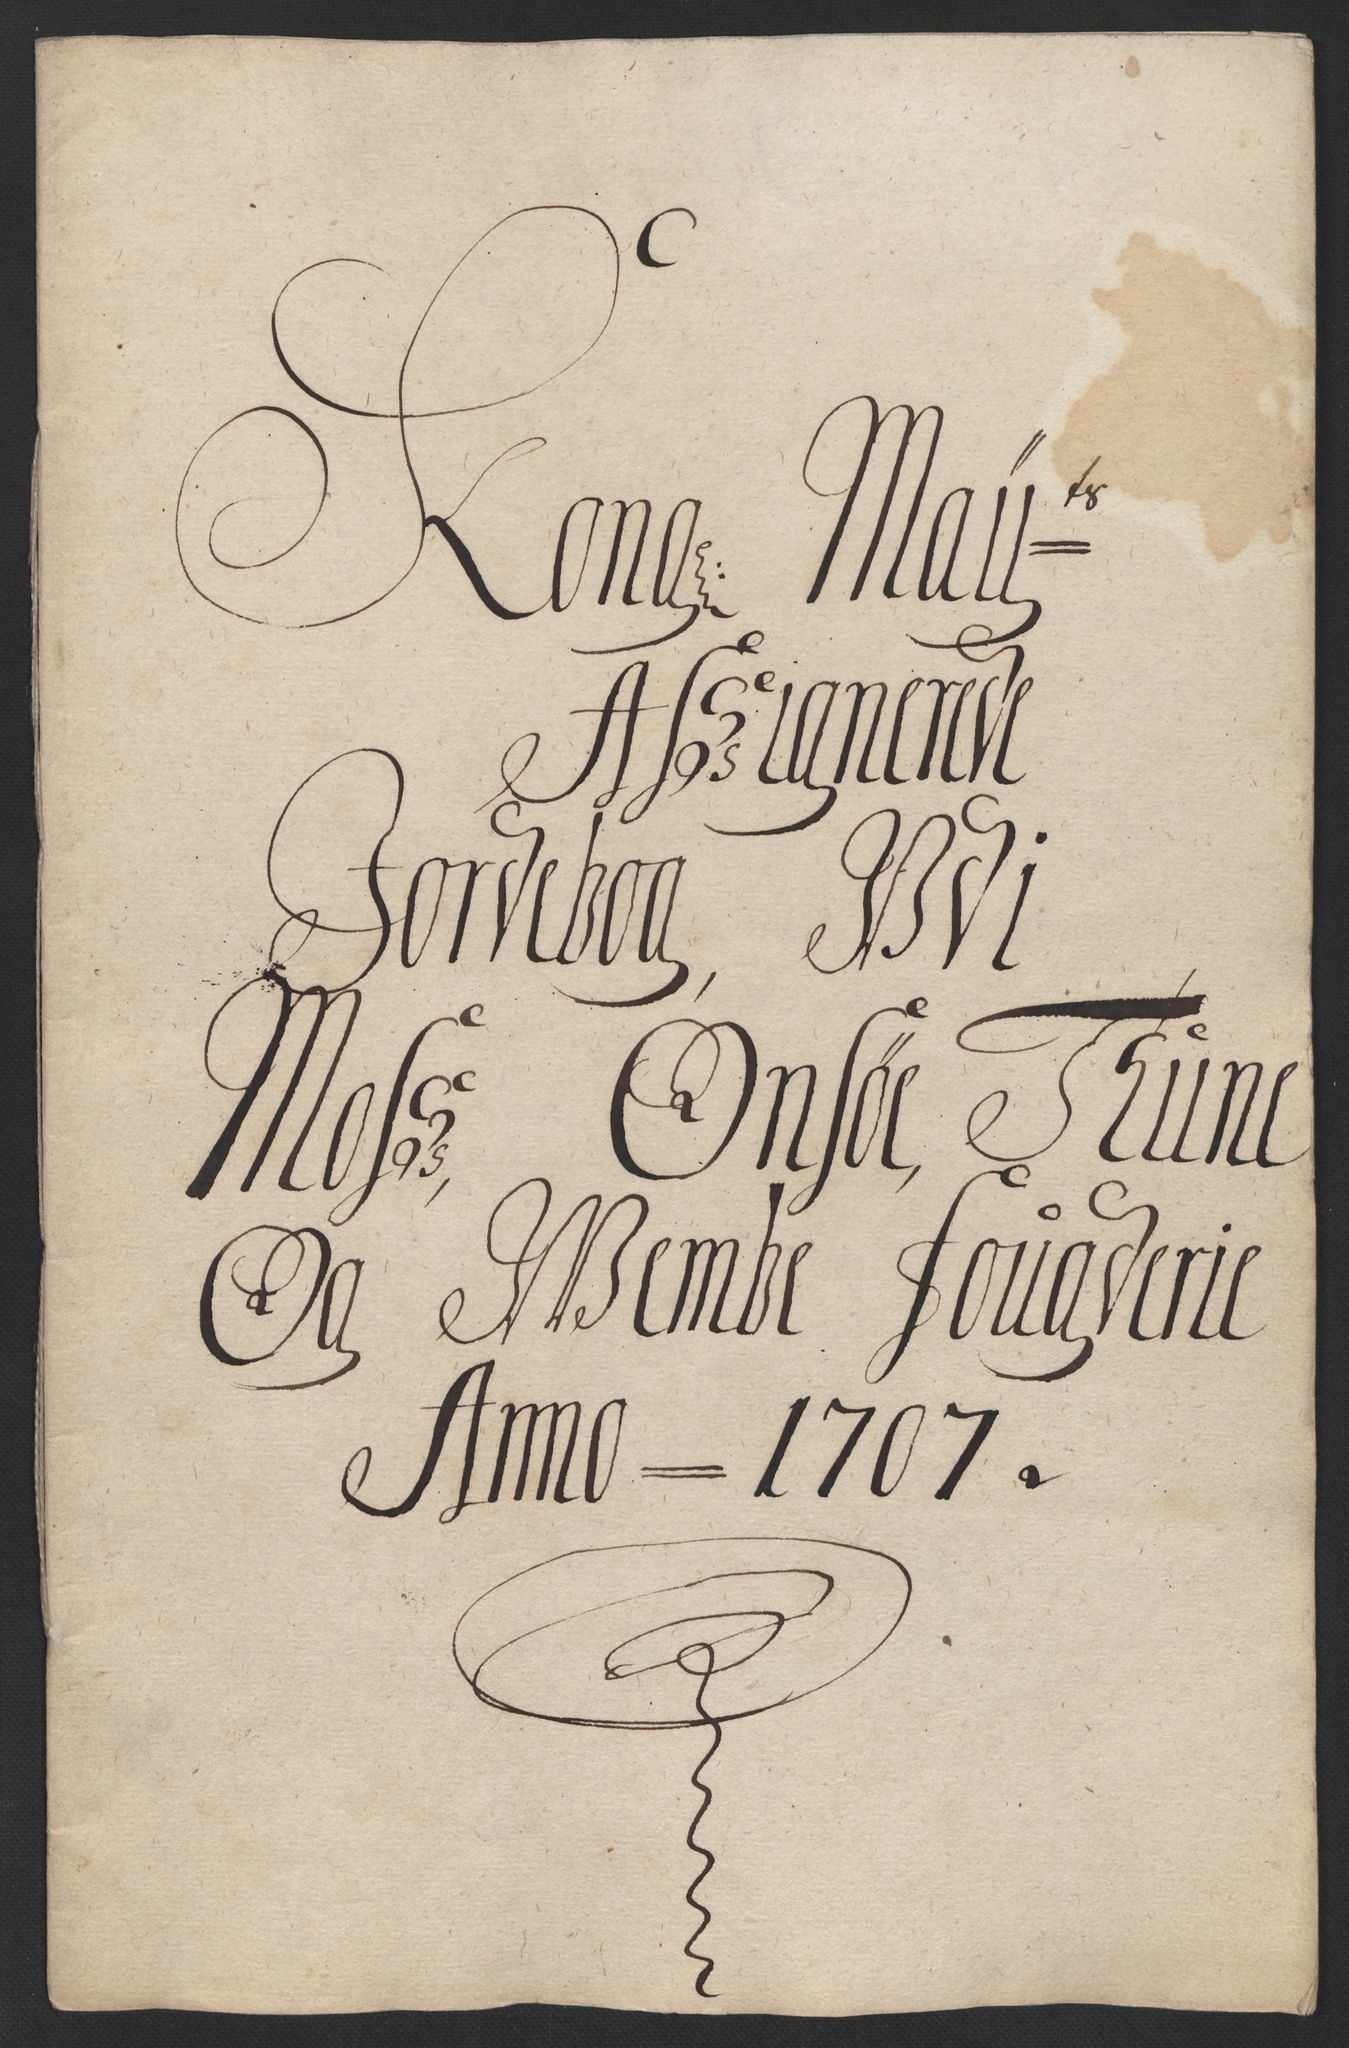 C
Kong: Maÿ=ts
Assignerede
Jordebog, Wdi
Moss, Onsöe, Thune
Og Wembe fougderie
Anno = 1707.